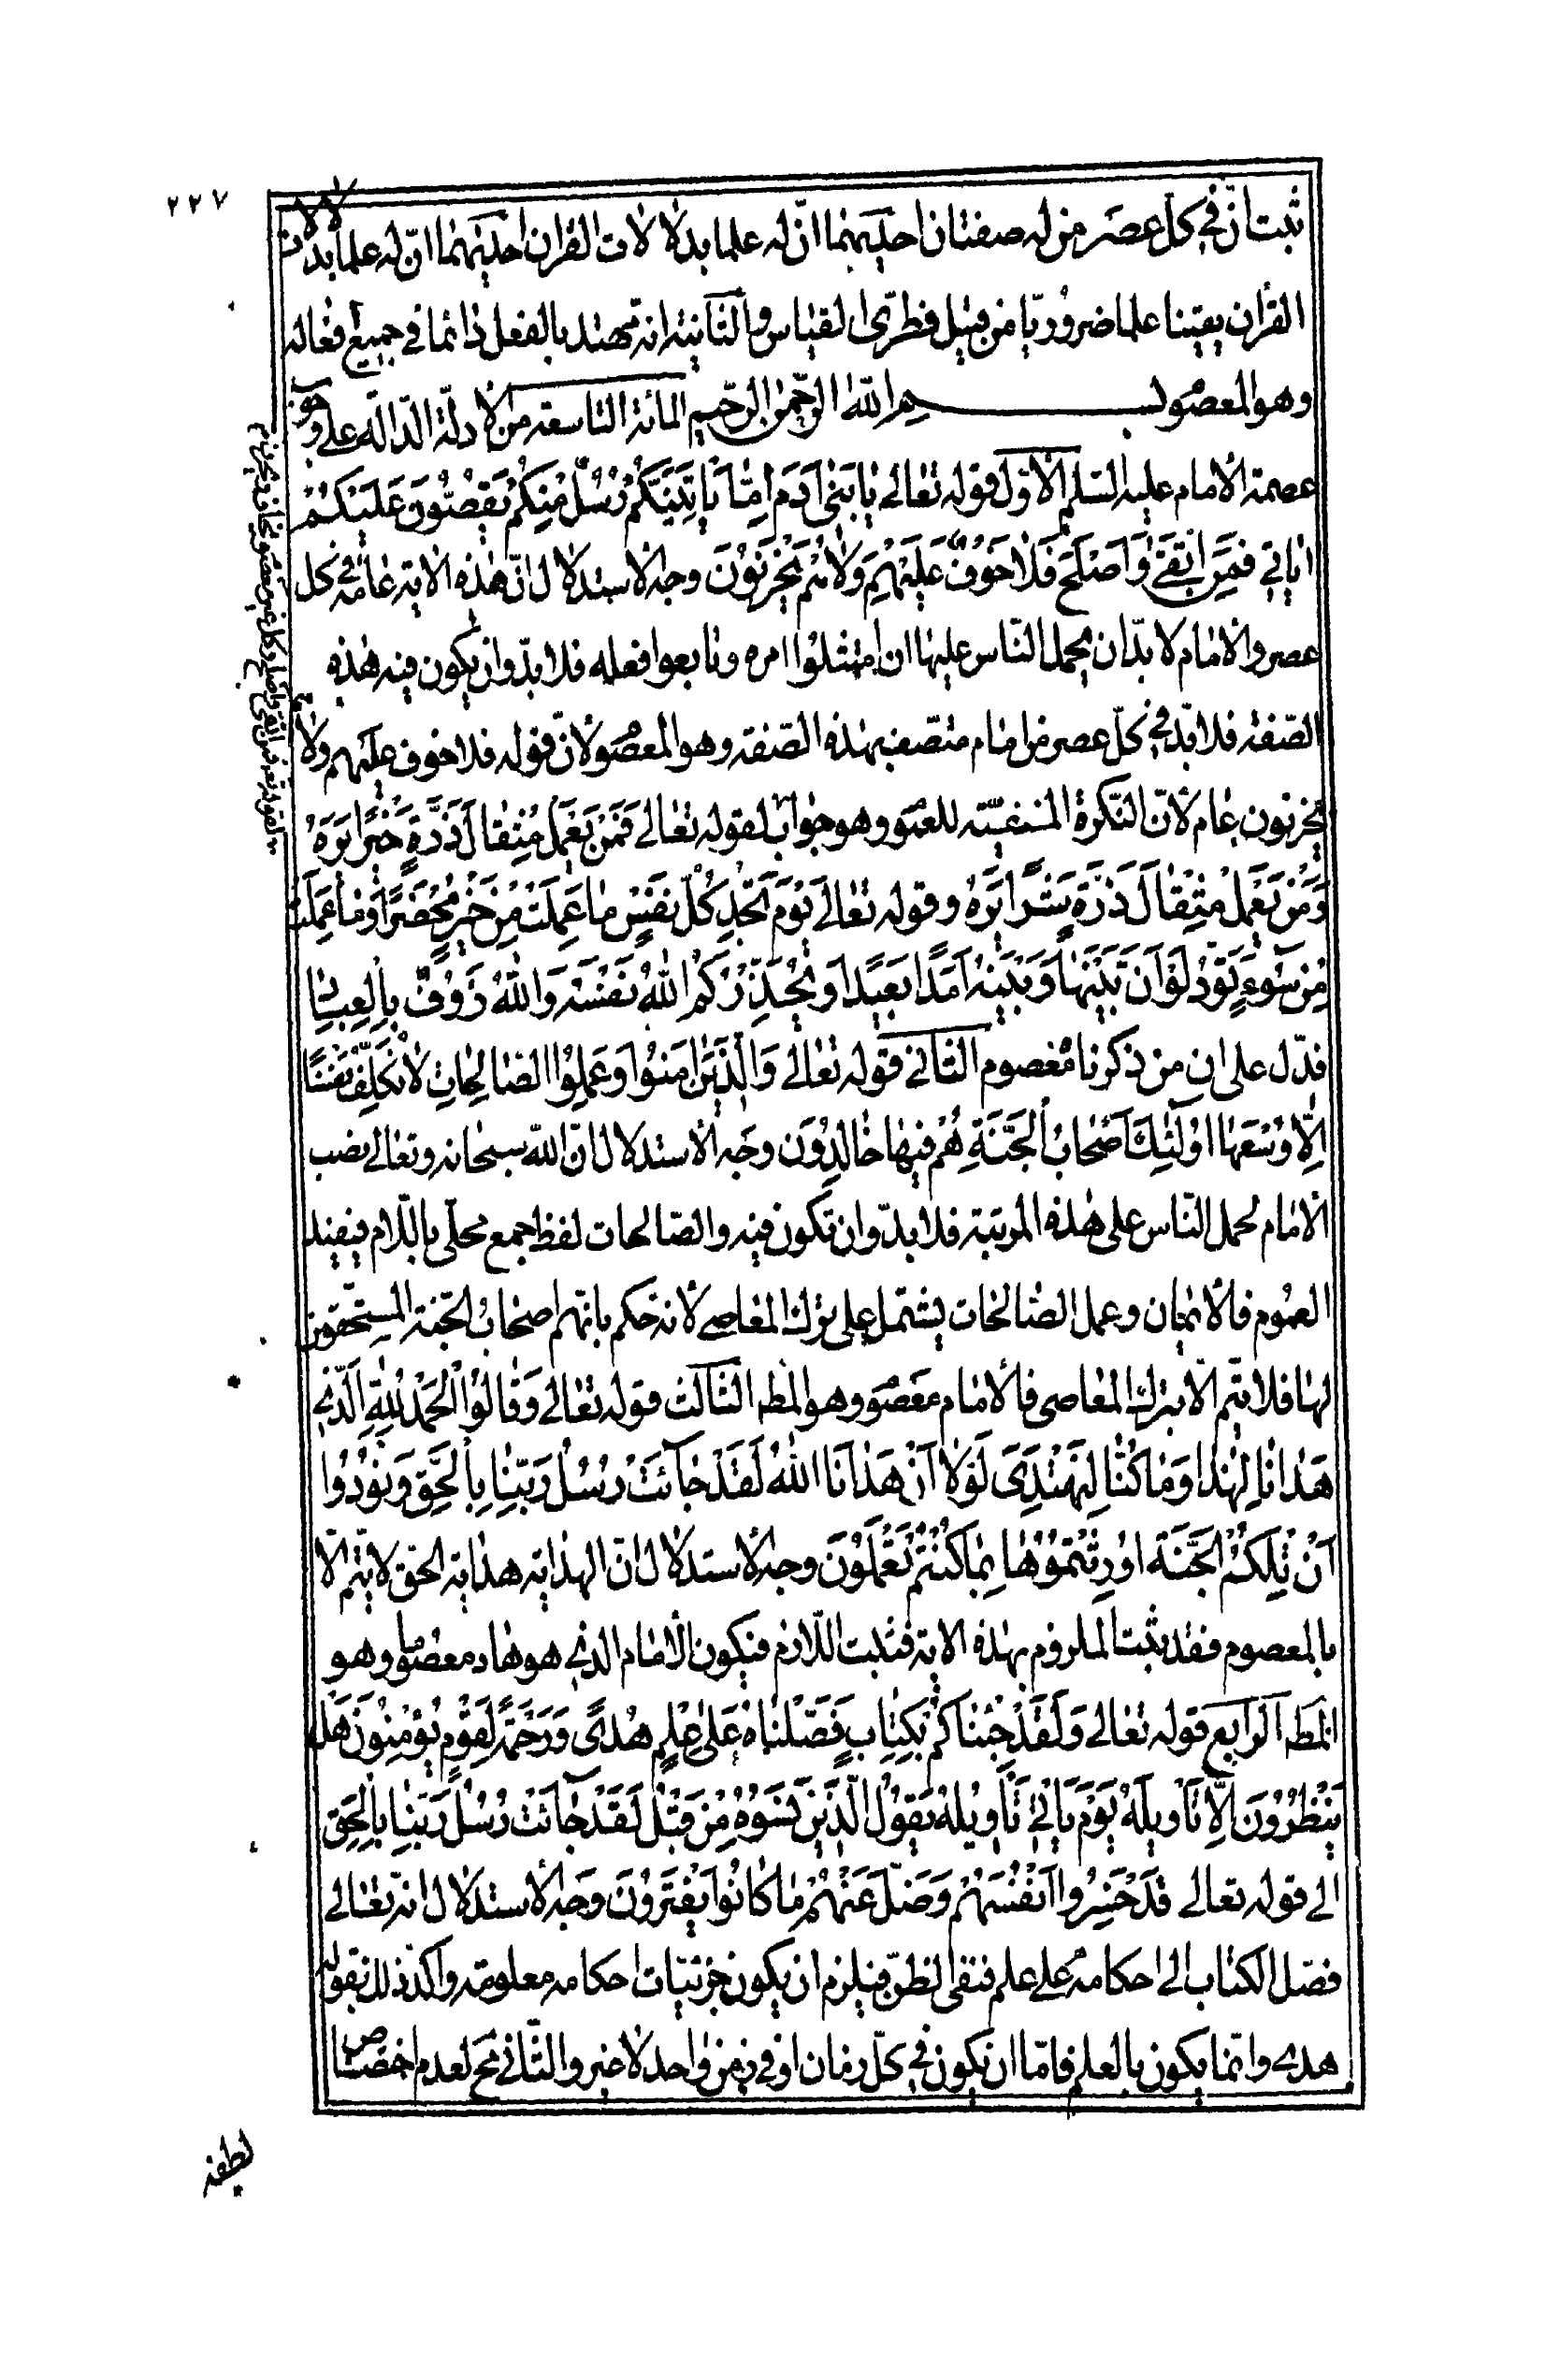 ٢٢٧
ثبت ان في كل عصر من له صفتان احديهما ان له علما بدلالات القران احديهما ان له علما بدلالات
القران يقينا علما ضروريا من قبيل فطرى القياس والثانية انه مهتد بالفعل دائما في جميع افعاله
وهو المعصوم بسم الله الرحمن الرحيم المائة التاسعة من الادلة الدالة على وجوب
عصمة الامام عليه السلم الاول قوله تعالى يا بَنى ادَم اِمّا يَاْتِيَنَّكُمْ رُسُلٌ مِنكُمْ يَقُصُّونَ عَلَيْكُمْ
اياتي فَمَنِ اتَّقى وَاَصْلَحَ فَلا خَوْفٌ عَلَيْهِمْ وَلا هُم يَحْزَنُونَ وجه الاستدلال ان هذه الاية عامة في كل
عصر والامام لا بد ان يحمل الناس عليها ان امتثلوا امره وتابعوا فعله فلا بد وان يكون فيه هذه
الصفة فلا بد في كل عصر من امام متصف بهذه الصفة وهو المعصوم لان قوله فلا خوف عليهم ولا هم
يحزنون عام لان النكرة المنفية للعموم وهو جواب لقوله تعالى فَمَنْ يَعْمَلْ مِثْقالَ ذَرَّةٍ خَيْرًا يَرَهُ
وَمَنْ يَعْمَلْ مِثْقالَ ذَرَّةٍ شَرًّا يَرَهُ وقوله تعالى يَوْمَ تَجِدُ كُلُّ نَفْسٍ ما عَمِلَتْ مِنْ خَيْرٍ مُحْضَرًا وَما عَمِلَت
مِنْ سُوءٍ تَوَدُّ لَوْ اَنَّ بَيْنَها وَبَيْنَهُ اَمَدًا بَعيدًا وَيُحَذِّرُكُمُ اللهُ نَفْسَهُ وَاللهُ رَؤُوفٌ بِالْعِبادِ
فدل على ان من ذكرنا معصوم الثاني قوله تعالى وَالَّذينَ امَنُوا وَعَمِلُوا الصّالِحاتِ لا نُكَلِّفُ نَفْسًا
اِلّا وُسْعَها اُولئِكَ اَصْحابُ الْجَنَّةِ هُمْ فيها خالِدُونَ وجه الاستدلال ان الله سبحانه وتعالى نصب
الامام لحمل الناس على هذه المرتبة فلا بد وان تكون فيه والصالحات لفظ جمع محلى باللام فيفيد
العموم فالايمان وعمل الصالحات يشتمل على ترك المعاصي لانه حكم بانهم اصحاب الجنة المستحقون
لها فلا يتم الا بترك المعاصى فالامام معصوم وهو المط الثالث قوله تعالى وَقالُوا الْحَمْدُ لِلّهِ الَّذي
هَدانا لِهذا وَما كُنّا لِنَهْتَدِىَ لَوْلا اَنْ هَدانَا اللهُ لَقَدْ جائَتْ رُسُلُ رَبِّنا بِالْحَقِّ وَنُودُوا
اَنْ تِلْكُمُ الْجَنَّةُ اُورِثْتُمُوها بِما كُنْتُمْ تَعْمَلُونَ وجه الاستدلال ان الهداية هداية الحق لا يتم الا
بالمعصوم فقد يثبت الملزوم بهذه الاية فثبت اللازم فيكون الامام الذي هو هاد معصوما وهو
المط الرابع قوله تعالى وَلَقَدْ جِئْناكُمْ بِكِتابٍ فَصَّلْناهُ عَلى عِلْمٍ هُدًى وَرَحْمَةً لِقَوْمٍ يُؤْمِنُونَ هَلْ
يَنْظُرُونَ اِلّا تَأْويلَهُ يَوْمَ يَأْتي تَأْويلُهُ يَقُولُ الَّذينَ نَسُوهُ مِنْ قَبْلُ لَقَدْ جائَتْ رُسُلُ رَبِّنا بِالْحَقِّ
الى قوله تعالى قَدْ خَسِرُوا اَنْفُسَهُمْ وَضَلَّ عَنْهُمْ ما كانُوا يَفْتَرُونَ وجه الاستدلال انه تعالى
فصل الكتاب الى احكامه على علم فنفى الظن فيلزم ان يكون جزئيات احكامه معلومة واكد ذلك بقوله
هدى وانما يكون بالعلم فاما ان يكون في كل زمان او في زمن واحد لا غير والثاني مح لعدم اختصاص
لطفه